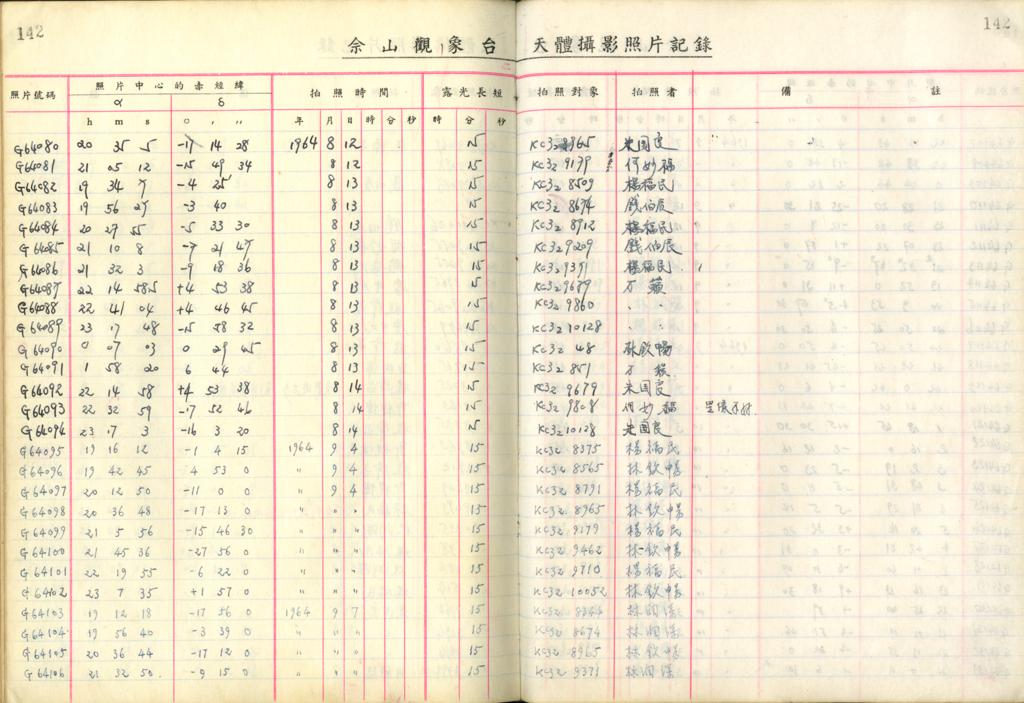 142
142
佘山觀象台 天體攝影照片記錄
照片號碼 照片中心的赤經緯 拍照時間 露光長短 拍照對象 拍照者 備 註
α δ
h m s ° ′ ″ 年 月 日 時 分 秒 時 分 秒
G64080 20 35 5 -17 14 28 1964 8 12 15 KC32 8965 朱国良
G64081 21 05 12 -15 49 34 8 12 15 KC32 9179 何妙福
G64082 19 34 7 -4 25 8 13 15 KC32 8509 楊福民
G64083 19 56 27 -3 40 8 13 15 KC32 8674 錢伯辰
G64084 20 27 55 -5 33 30 8 13 15 KC32 8912 楊福民
G64085 21 10 8 -7 21 47 8 13 15 KC32 9209 錢伯辰
G64086 21 32 3 -9 18 36 8 13 15 KC32 9371 楊福民
G64087 22 14 58.5 +4 53 38 8 13 15 KC32 9679
G64088 22 41 04 +4 46 45 8 13 15 KC32 9860 〃 〃
G64089 23 17 48 -15 58 32 8 13 15 KC32 10128 〃 〃
G64090 0 07 03 0 29 45 8 13 15 KC32 48 林欽暢
G64091 1 58 20 6 44 8 13 15 KC32 851
G64092 22 14 58 +4 53 38 8 14 15 KC32 9679 朱国良
G64093 22 32 59 -17 52 46 8 14 15 KC32 9808 何妙福 星像不好
G64094 23 17 3 -16 3 20 8 14 15 KC32 10128 朱国良
G64095 19 16 12 -1 4 15 1964 9 4 15 KC32 8375 楊福民
G64096 19 42 45 4 53 0 〃 9 4 15 KC32 8565 林欽暢
G64097 20 12 50 -11 0 0 〃 9 4 15 KC32 8791 楊福民
G64098 20 36 48 -17 13 0 〃 〃 〃 15 KC32 8965 林欽暢
G64099 21 5 56 -15 46 30 〃 〃 〃 15 KC32 9179 楊福民
G64100 21 45 36 -27 56 0 〃 〃 〃 15 KC32 9462 林欽暢
G64101 22 19 55 -6 22 0 〃 〃 〃 15 KC32 9710 楊福民
G64102 23 7 35 +1 57 0 〃 〃 〃 15 KC32 10052 林欽暢
G64103 19 12 18 -17 56 0 1964 9 7 15 KC32 8344
G64104 19 56 40 -3 39 0 〃 〃 〃 15 KC32 8674
G64105 20 36 44 -17 12 0 〃 〃 〃 15 KC32 8965 林欽暢
G64106 21 32 50 -9 15 0 〃 〃 〃 15 KC32 9371